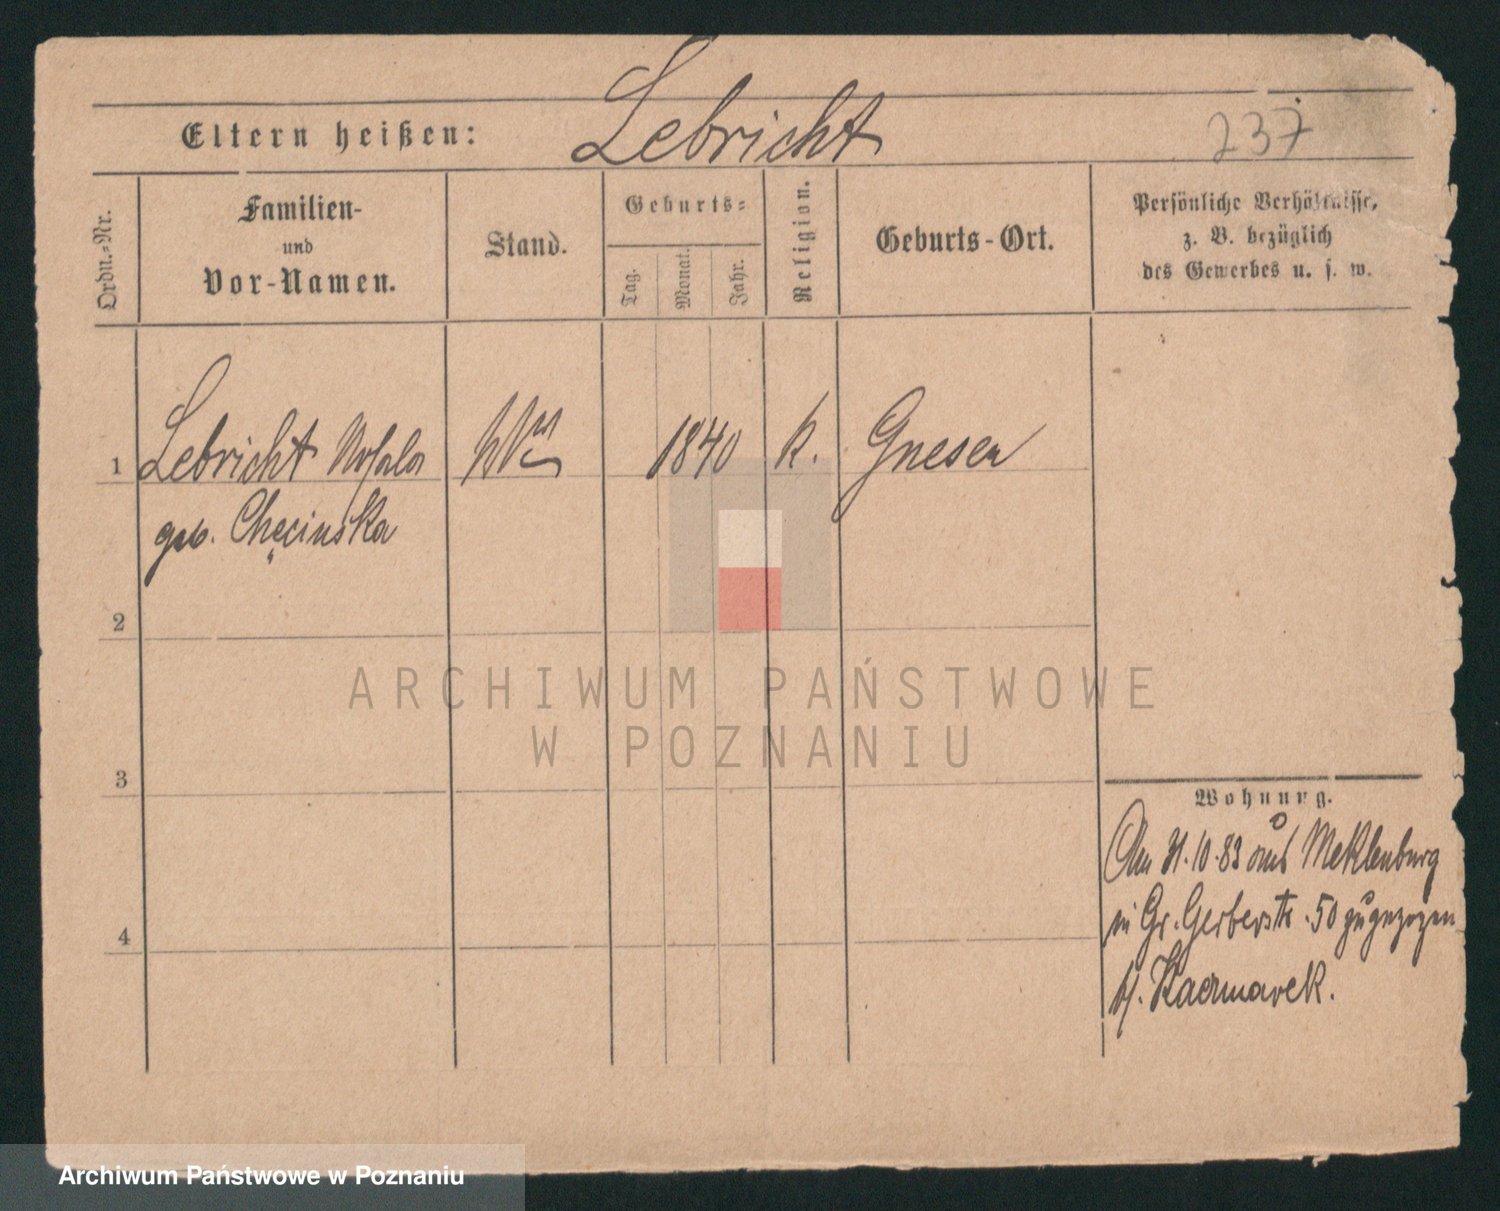 Eltern heißen: Lebricht 237
Ordn.-Nr.
Familien-
und
Vor-Namen.
Stand.
Geburts-
Tag.
Monat.
Jahr.
Religion.
Geburts-Ort.
Persönliche Verhältnisse,
z. B. bezüglich
des Gewerbes u. s. w.
1 Lebricht 1840 k. Gnesen
geb. Chęcinska
2
3
4
ARCHIWUM PAŃSTWOWE
W POZNANIU
Wohnung.
Am 31.10.83 aus Meklenburg
in Gr. Gerberstr. 50 zugezogen
b/. Kaczmarek.
Archiwum Państwowe w Poznaniu